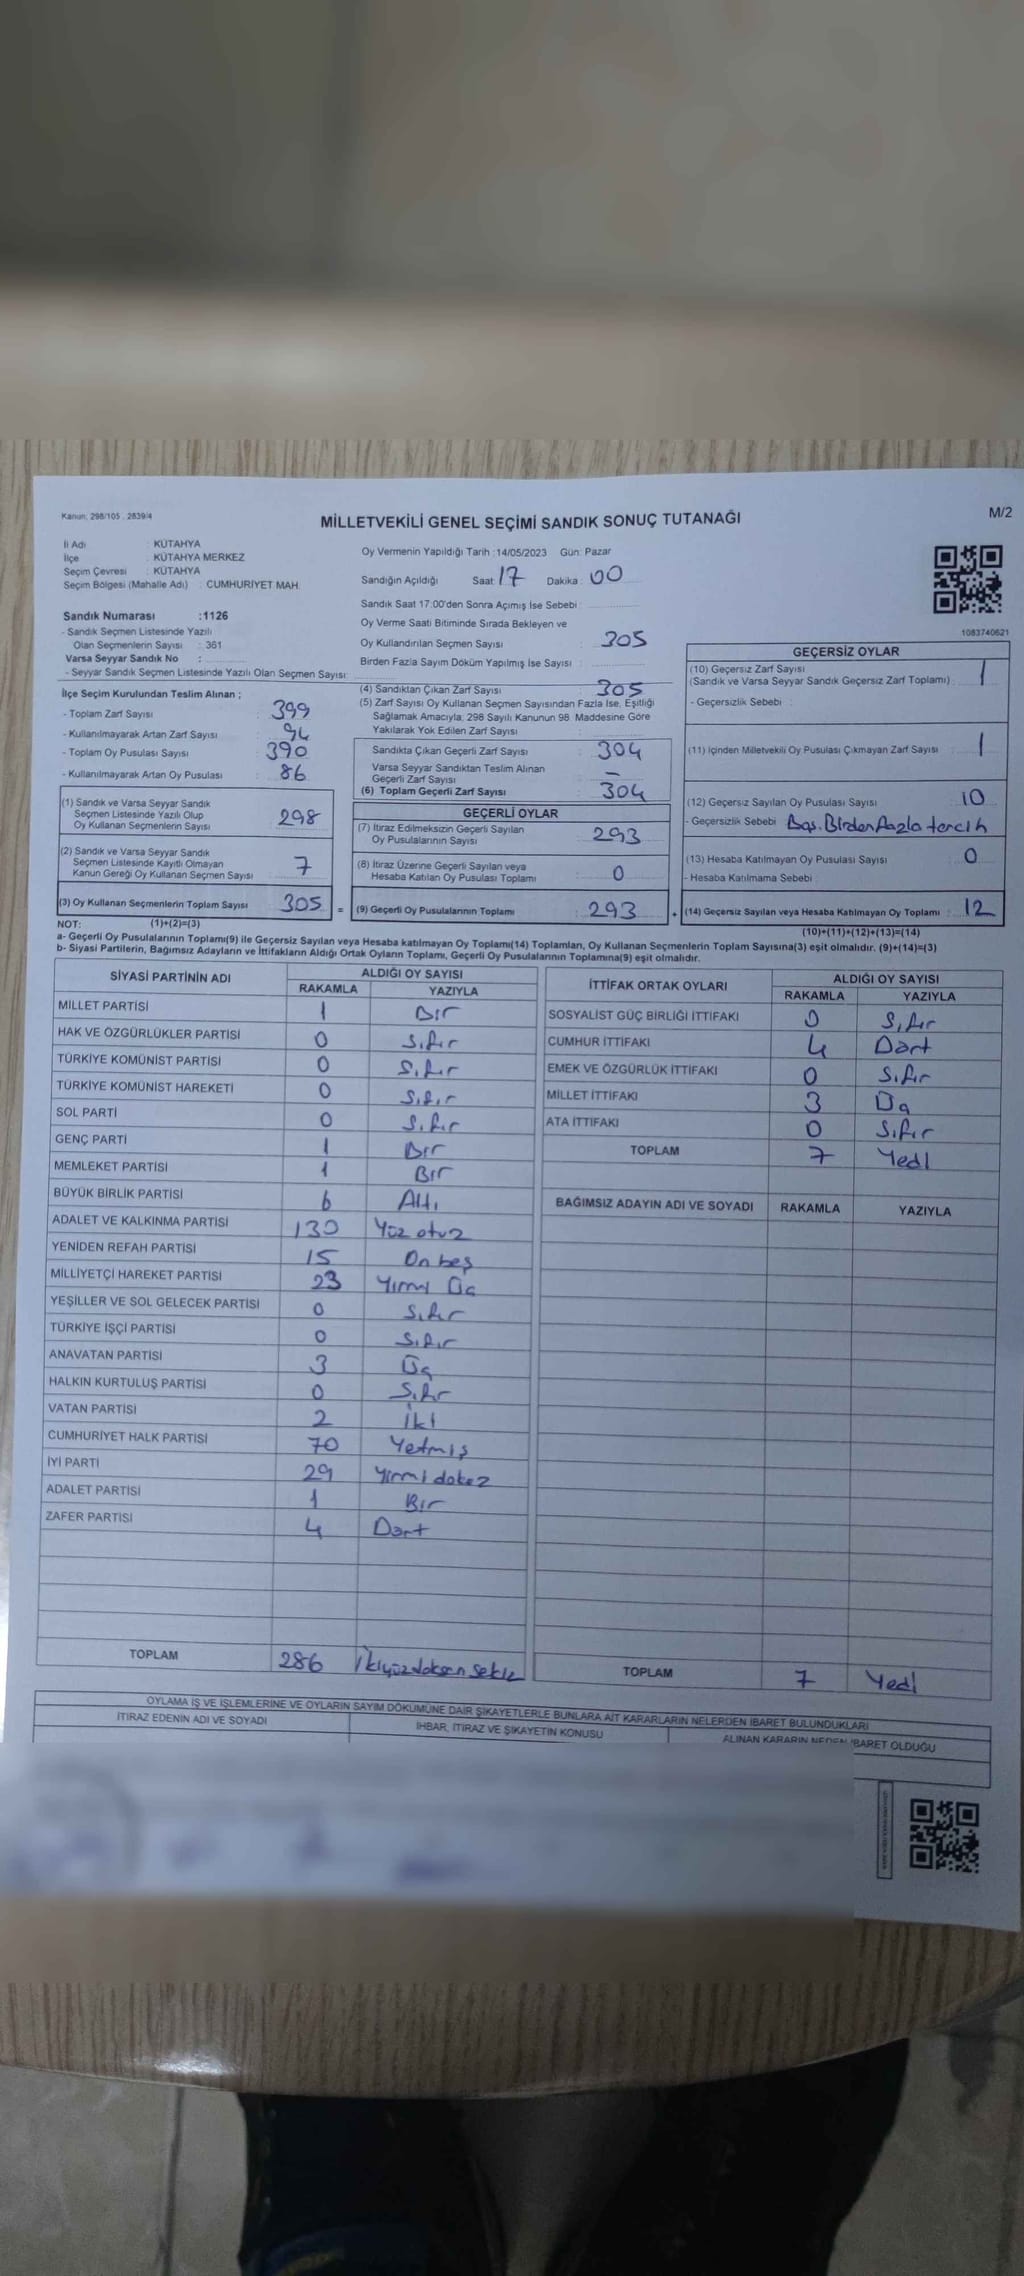 Kanun: 298/105 , 2839/4
MİLLETVEKİLİ GENEL SEÇİMİ SANDIK SONUÇ TUTANAĞI
M/2
İl Adı : KÜTAHYA
İlçe : KÜTAHYA MERKEZ
Seçim Çevresi : KÜTAHYA
Seçim Bölgesi (Mahalle Adı) : CUMHURİYET MAH.
Oy Vermenin Yapıldığı Tarih :14/05/2023 Gün: Pazar
Sandığın Açıldığı Saat 17 Dakika : 00
Sandık Saat 17:00'den Sonra Açımış İse Sebebi :
Oy Verme Saati Bitiminde Sırada Bekleyen ve
Oy Kullandırılan Seçmen Sayısı : 305
Birden Fazla Sayım Döküm Yapılmış İse Sayısı :
1083740621
Sandık Numarası :1126
- Sandık Seçmen Listesinde Yazılı
Olan Seçmenlerin Sayısı : 361
Varsa Seyyar Sandık No :
- Seyyar Sandık Seçmen Listesinde Yazılı Olan Seçmen Sayısı:
İlçe Seçim Kurulundan Teslim Alınan ;
- Toplam Zarf Sayısı : 399
- Kullanılmayarak Artan Zarf Sayısı : 94
- Toplam Oy Pusulası Sayısı : 390
- Kullanılmayarak Artan Oy Pusulası : 86
(1) Sandık ve Varsa Seyyar Sandık
Seçmen Listesinde Yazılı Olup
Oy Kullanan Seçmenlerin Sayısı : 298
(2) Sandık ve Varsa Seyyar Sandık
Seçmen Listesinde Kayıtlı Olmayan
Kanun Gereği Oy Kullanan Seçmen Sayısı : 7
(3) Oy Kullanan Seçmenlerin Toplam Sayısı : 305 =
(4) Sandıktan Çıkan Zarf Sayısı : 305
(5) Zarf Sayısı Oy Kullanan Seçmen Sayısından Fazla İse, Eşitliği
Sağlamak Amacıyla; 298 Sayılı Kanunun 98. Maddesine Göre
Yakılarak Yok Edilen Zarf Sayısı :
Sandıkta Çıkan Geçerli Zarf Sayısı : 304
Varsa Seyyar Sandıktan Teslim Alınan
Geçerli Zarf Sayısı : -
(6) Toplam Geçerli Zarf Sayısı : 304
GEÇERLİ OYLAR
(7) İtiraz Edilmeksizin Geçerli Sayılan
Oy Pusulalarının Sayısı : 293
(8) İtiraz Üzerine Geçerli Sayılan veya
Hesaba Katılan Oy Pusulası Toplamı : 0
(9) Geçerli Oy Pusulalarının Toplamı : 293 +
GEÇERSİZ OYLAR
(10) Geçersiz Zarf Sayısı
(Sandık ve Varsa Seyyar Sandık Geçersiz Zarf Toplamı) : 1
- Geçersizlik Sebebi :
(11) İçinden Milletvekili Oy Pusulası Çıkmayan Zarf Sayısı : 1
(12) Geçersiz Sayılan Oy Pusulası Sayısı : 10
- Geçersizlik Sebebi : Birden fazla tercih
(13) Hesaba Katılmayan Oy Pusulası Sayısı : 0
- Hesaba Katılmama Sebebi :
(14) Geçersiz Sayılan veya Hesaba Katılmayan Oy Toplamı : 12
NOT: (1)+(2)=(3)
(10)+(11)+(12)+(13)=(14)
a- Geçerli Oy Pusulalarının Toplamı(9) ile Geçersiz Sayılan veya Hesaba katılmayan Oy Toplamı(14) Toplamları, Oy Kullanan Seçmenlerin Toplam Sayısına(3) eşit olmalıdır. (9)+(14)=(3)
b- Siyasi Partilerin, Bağımsız Adayların ve İttifakların Aldığı Ortak Oyların Toplamı, Geçerli Oy Pusulalarının Toplamına(9) eşit olmalıdır.
SİYASİ PARTİNİN ADI ALDIĞI OY SAYISI
RAKAMLA YAZIYLA
MİLLET PARTİSİ 1 Bir
HAK VE ÖZGÜRLÜKLER PARTİSİ 0 Sıfır
TÜRKİYE KOMÜNİST PARTİSİ 0 Sıfır
TÜRKİYE KOMÜNİST HAREKETİ 0 Sıfır
SOL PARTİ 0 Sıfır
GENÇ PARTİ 1 Bir
MEMLEKET PARTİSİ 1 Bir
BÜYÜK BİRLİK PARTİSİ 6 Altı
ADALET VE KALKINMA PARTİSİ 130 Yüz otuz
YENİDEN REFAH PARTİSİ 15 On beş
MİLLİYETÇİ HAREKET PARTİSİ 23 Yirmi Üç
YEŞİLLER VE SOL GELECEK PARTİSİ 0 Sıfır
TÜRKİYE İŞÇİ PARTİSİ 0 Sıfır
ANAVATAN PARTİSİ 3 Üç
HALKIN KURTULUŞ PARTİSİ 0 Sıfır
VATAN PARTİSİ 2 İki
CUMHURİYET HALK PARTİSİ 70 Yetmiş
İYİ PARTİ 29 Yirmi dokuz
ADALET PARTİSİ 1 Bir
ZAFER PARTİSİ 4 Dört
TOPLAM 286 İkiyüzdoksan sekiz
İTTİFAK ORTAK OYLARI ALDIĞI OY SAYISI
RAKAMLA YAZIYLA
SOSYALİST GÜÇ BİRLİĞİ İTTİFAKI 0 Sıfır
CUMHUR İTTİFAKI 4 Dört
EMEK VE ÖZGÜRLÜK İTTİFAKI 0 Sıfır
MİLLET İTTİFAKI 3 Üç
ATA İTTİFAKI 0 Sıfır
TOPLAM 7 Yedi
BAĞIMSIZ ADAYIN ADI VE SOYADI RAKAMLA YAZIYLA
TOPLAM 7 Yedi
OYLAMA İŞ VE İŞLEMLERİNE VE OYLARIN SAYIM DÖKÜMÜNE DAİR ŞİKAYETLERLE BUNLARA AİT KARARLARIN NELERDEN İBARET BULUNDUKLARI
İTİRAZ EDENİN ADI VE SOYADI
İHBAR, İTİRAZ VE ŞİKAYETİN KONUSU
ALINAN KARARIN NEDEN İBARET OLDUĞU